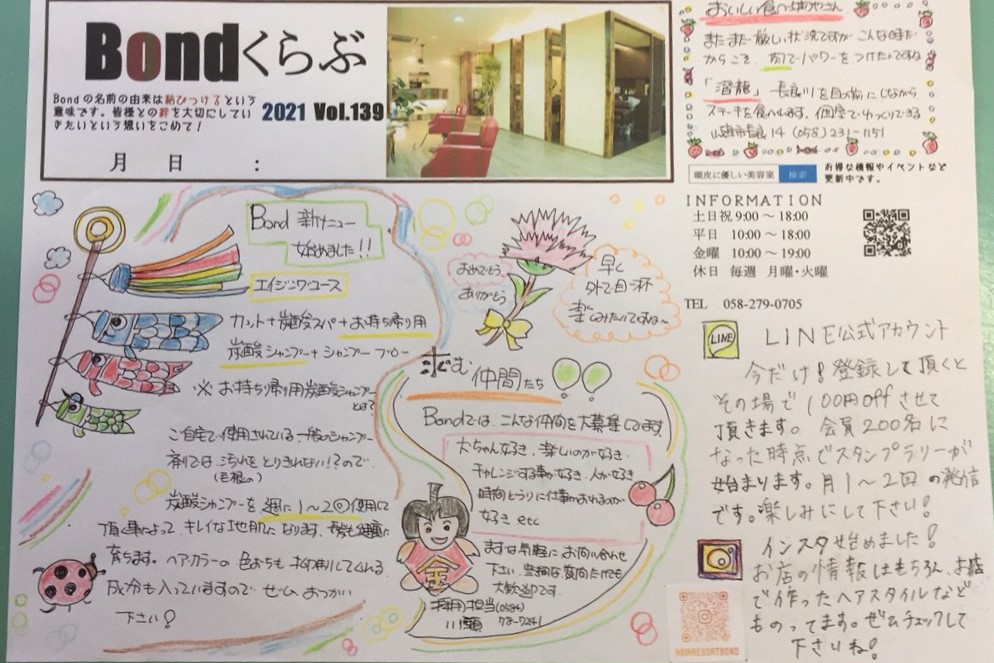 Bondくらぶ
Bondの名前の由来は結びつけるという
意味です。皆様との絆を大切にしてい
きたいという想いをこめて！
2021 Vol.139
月 日 :
おいしい食べ物やさん
まだまだ厳しい状況ですが こんな時だ
からこそ、肉でパワーをつけたいですね
「潜龍」 長良川を目の前にしながら
ステーキを食べれます。個室でゆっくりできる
(058)231-1151
頭皮に優しい美容室 検索
お得な情報やイベントなど
更新中です。
INFORMATION
土日祝 9:00 〜 18:00
平日 10:00 〜 18:00
金曜 10:00 〜 19:00
休日 毎週 月曜・火曜
TEL 058-279-0705
Bond 新メニュー
始めました!!
エイジングコース
カット+炭酸スパ+お持ち帰り用
炭酸シャンプー+シャンプーブロー
※ お持ち帰り用炭酸シャンプー
とは?
ご自宅で使用されている一般のシャンプー
剤では 汚れをとりきれない!?ので、
(毛根の)
炭酸シャンプーを 週に1〜2回使用して
頂く事によって キレイな地肌になります、髪も健康に
育ちます。ヘアカラーの色おちも抑制してくれる
成分も入っていますので ぜひ、おつかい
下さい!
おめでとう
ありがとう
早く
外で目一杯
楽しみたいですね〜
求む 仲間たち
Bondでは、こんな仲間を大募集してます。
犬ちゃん好き、楽しいのが好き、
チャレンジする事が好き、人が好き
時間どうりに仕事がおわるのが
好き etc
まずは気軽にお問い合わせ
下さい。些細な質問だけでも
大歓迎です。
採用担当(0584)
川瀬 78-7241
金
LINE
LINE公式アカウント
今だけ! 登録して頂くと
その場で100円offさせて
頂きます。会員200名に
なった時点でスタンプラリーが
始まります。月1〜2回の発信
です。楽しみにして下さい!
インスタ始めました!
お店の情報はもちろん、お店
で作ったヘアスタイルなど
ものってます。ぜひチェックして
下さいね!
HAIRRESORTBOND